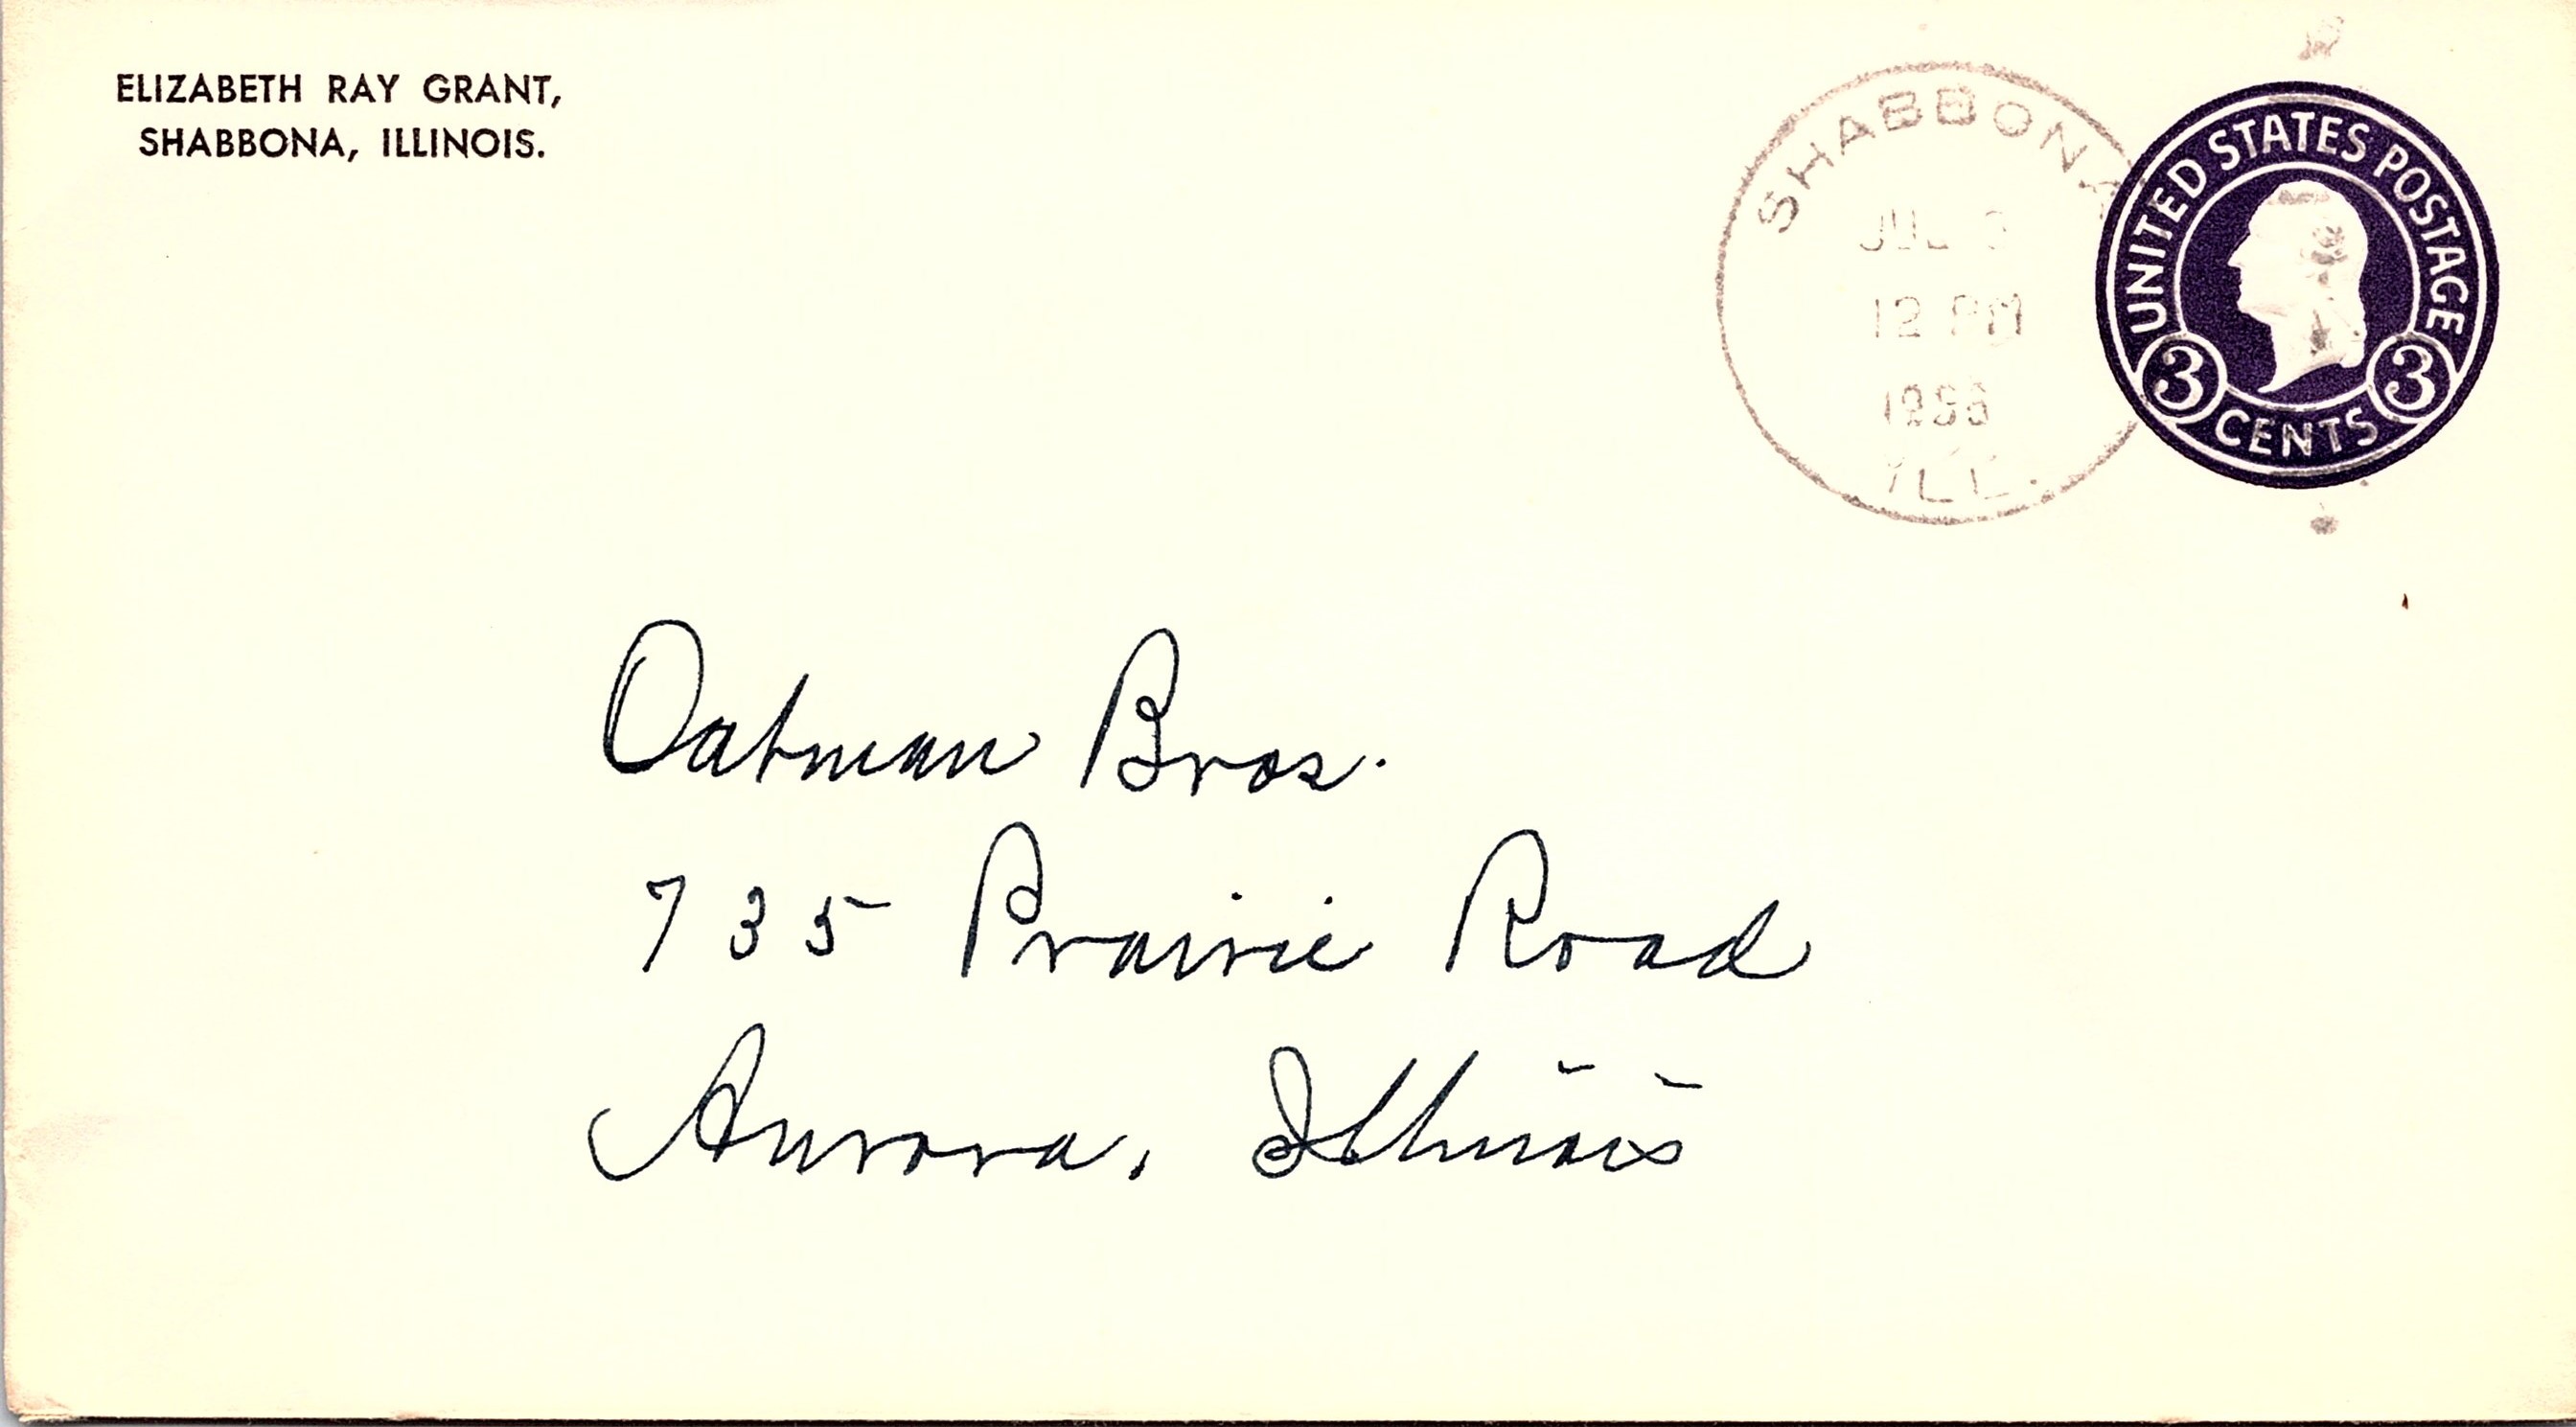 ELIZABETH RAY GRANT,
SHABBONA, ILLINOIS.
SHABBONA
JUL 3
12 PM
ILL.
UNITED STATES POSTAGE
3 CENTS 3
Oatman Bros.
735 Prairie Road
Aurora, Illinois